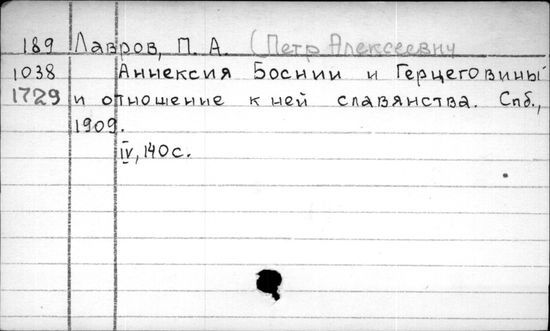 189 Лавров, П. А. (Петр Алексеевич
1038 Аннексия Боснии и Герцеговины
1729 и отношение к ней славянства. Спб.,
1909.
IV, 140 с.